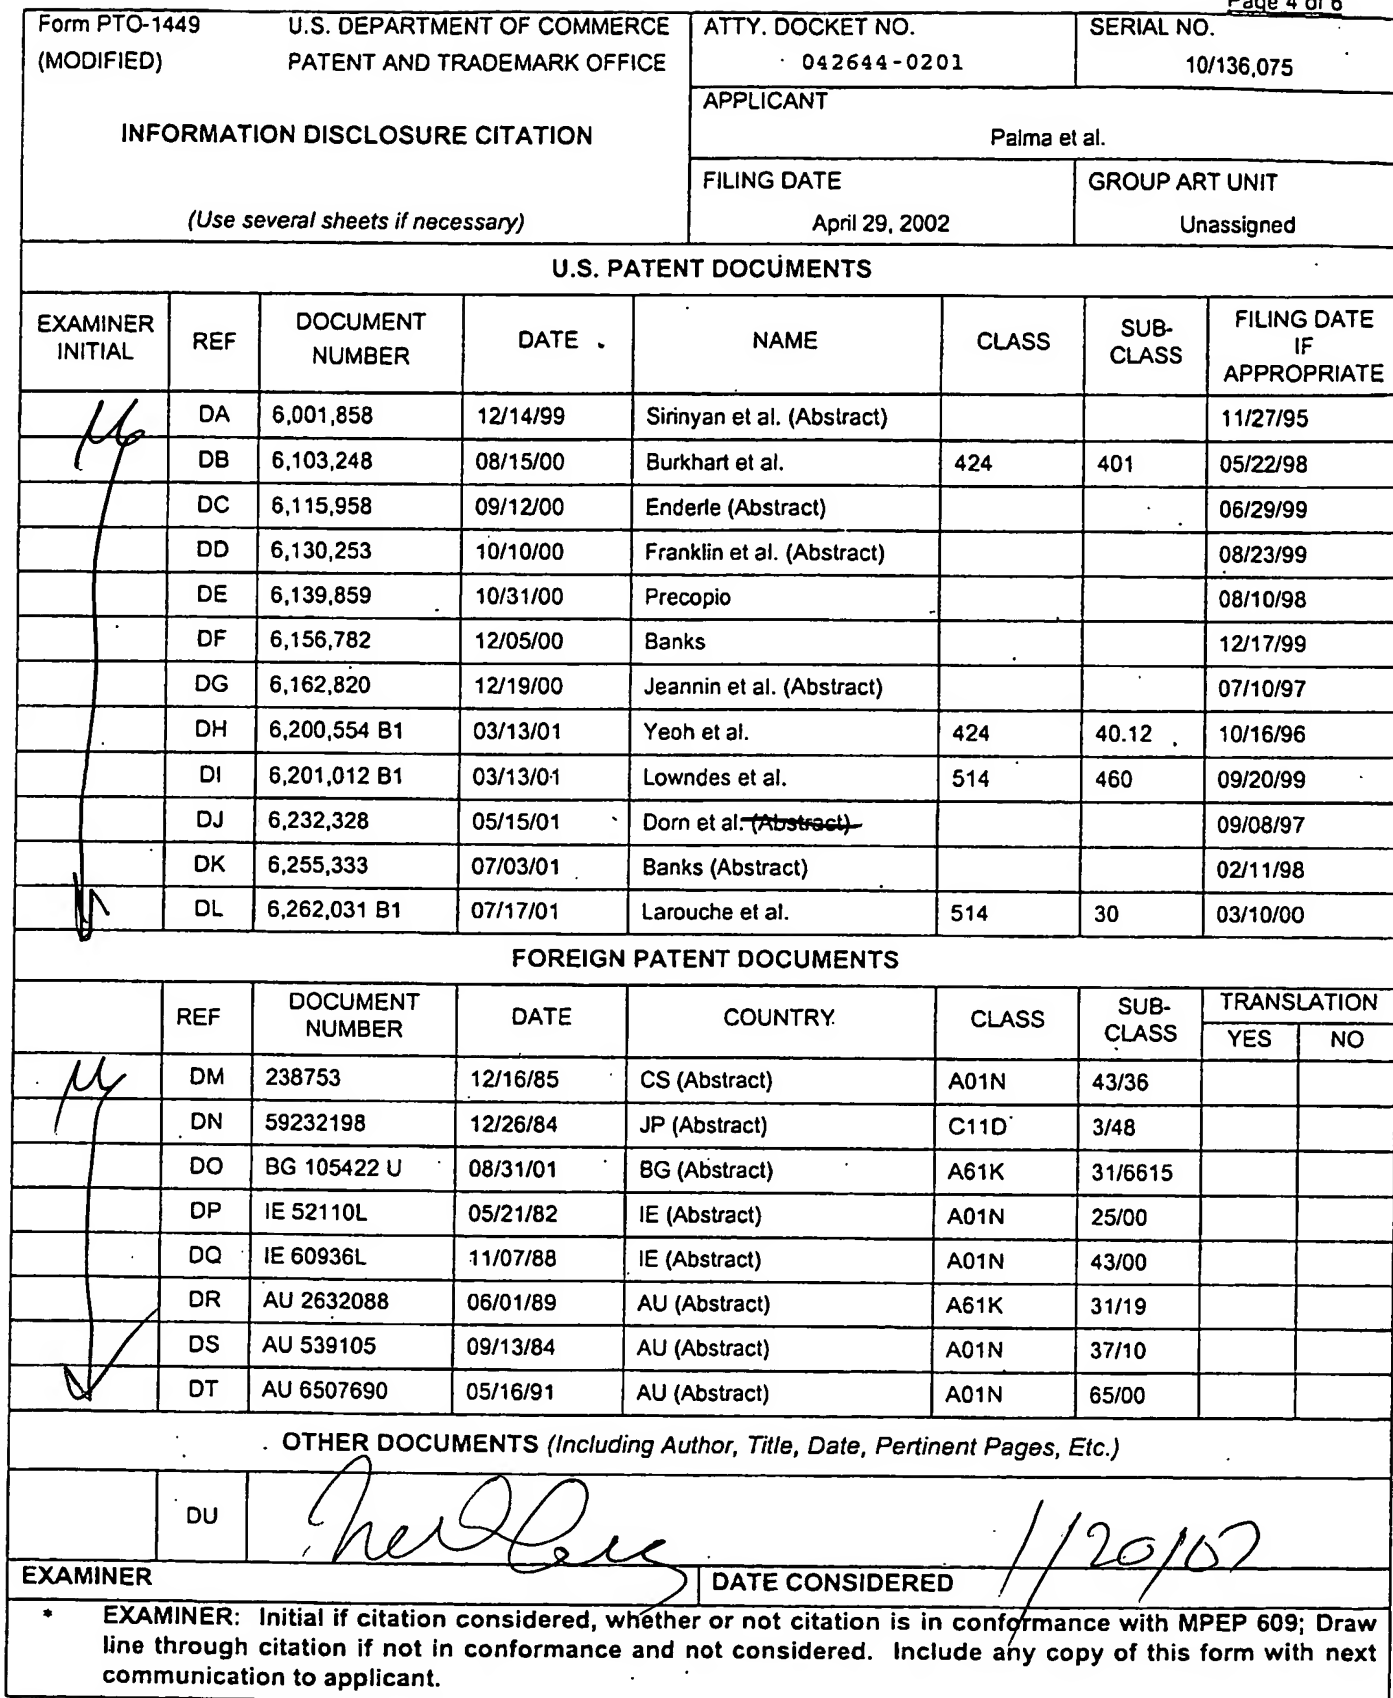 Page 4 of 6
Form PTO-1449 U.S. DEPARTMENT OF COMMERCE
(MODIFIED) PATENT AND TRADEMARK OFFICE
INFORMATION DISCLOSURE CITATION
(Use several sheets if necessary)
ATTY. DOCKET NO.
042644-0201
SERIAL NO.
10/136,075
APPLICANT
Palma et al.
FILING DATE
April 29, 2002
GROUP ART UNIT
Unassigned
U.S. PATENT DOCUMENTS
EXAMINER INITIAL REF DOCUMENT NUMBER DATE NAME CLASS SUB-CLASS FILING DATE IF APPROPRIATE
DA 6,001,858 12/14/99 Sirinyan et al. (Abstract) 11/27/95
DB 6,103,248 08/15/00 Burkhart et al. 424 401 05/22/98
DC 6,115,958 09/12/00 Enderle (Abstract) 06/29/99
DD 6,130,253 10/10/00 Franklin et al. (Abstract) 08/23/99
DE 6,139,859 10/31/00 Precopio 08/10/98
DF 6,156,782 12/05/00 Banks 12/17/99
DG 6,162,820 12/19/00 Jeannin et al. (Abstract) 07/10/97
DH 6,200,554 B1 03/13/01 Yeoh et al. 424 40.12 10/16/96
DI 6,201,012 B1 03/13/01 Lowndes et al. 514 460 09/20/99
DJ 6,232,328 05/15/01 Dorn et al. (Abstract) 09/08/97
DK 6,255,333 07/03/01 Banks (Abstract) 02/11/98
DL 6,262,031 B1 07/17/01 Larouche et al. 514 30 03/10/00
FOREIGN PATENT DOCUMENTS
REF DOCUMENT NUMBER DATE COUNTRY CLASS SUB-CLASS TRANSLATION YES NO
DM 238753 12/16/85 CS (Abstract) A01N 43/36
DN 59232198 12/26/84 JP (Abstract) C11D 3/48
DO BG 105422 U 08/31/01 BG (Abstract) A61K 31/6615
DP IE 52110L 05/21/82 IE (Abstract) A01N 25/00
DQ IE 60936L 11/07/88 IE (Abstract) A01N 43/00
DR AU 2632088 06/01/89 AU (Abstract) A61K 31/19
DS AU 539105 09/13/84 AU (Abstract) A01N 37/10
DT AU 6507690 05/16/91 AU (Abstract) A01N 65/00
OTHER DOCUMENTS (Including Author, Title, Date, Pertinent Pages, Etc.)
DU
1/20/07
EXAMINER DATE CONSIDERED
* EXAMINER: Initial if citation considered, whether or not citation is in conformance with MPEP 609; Draw
line through citation if not in conformance and not considered. Include any copy of this form with next
communication to applicant.